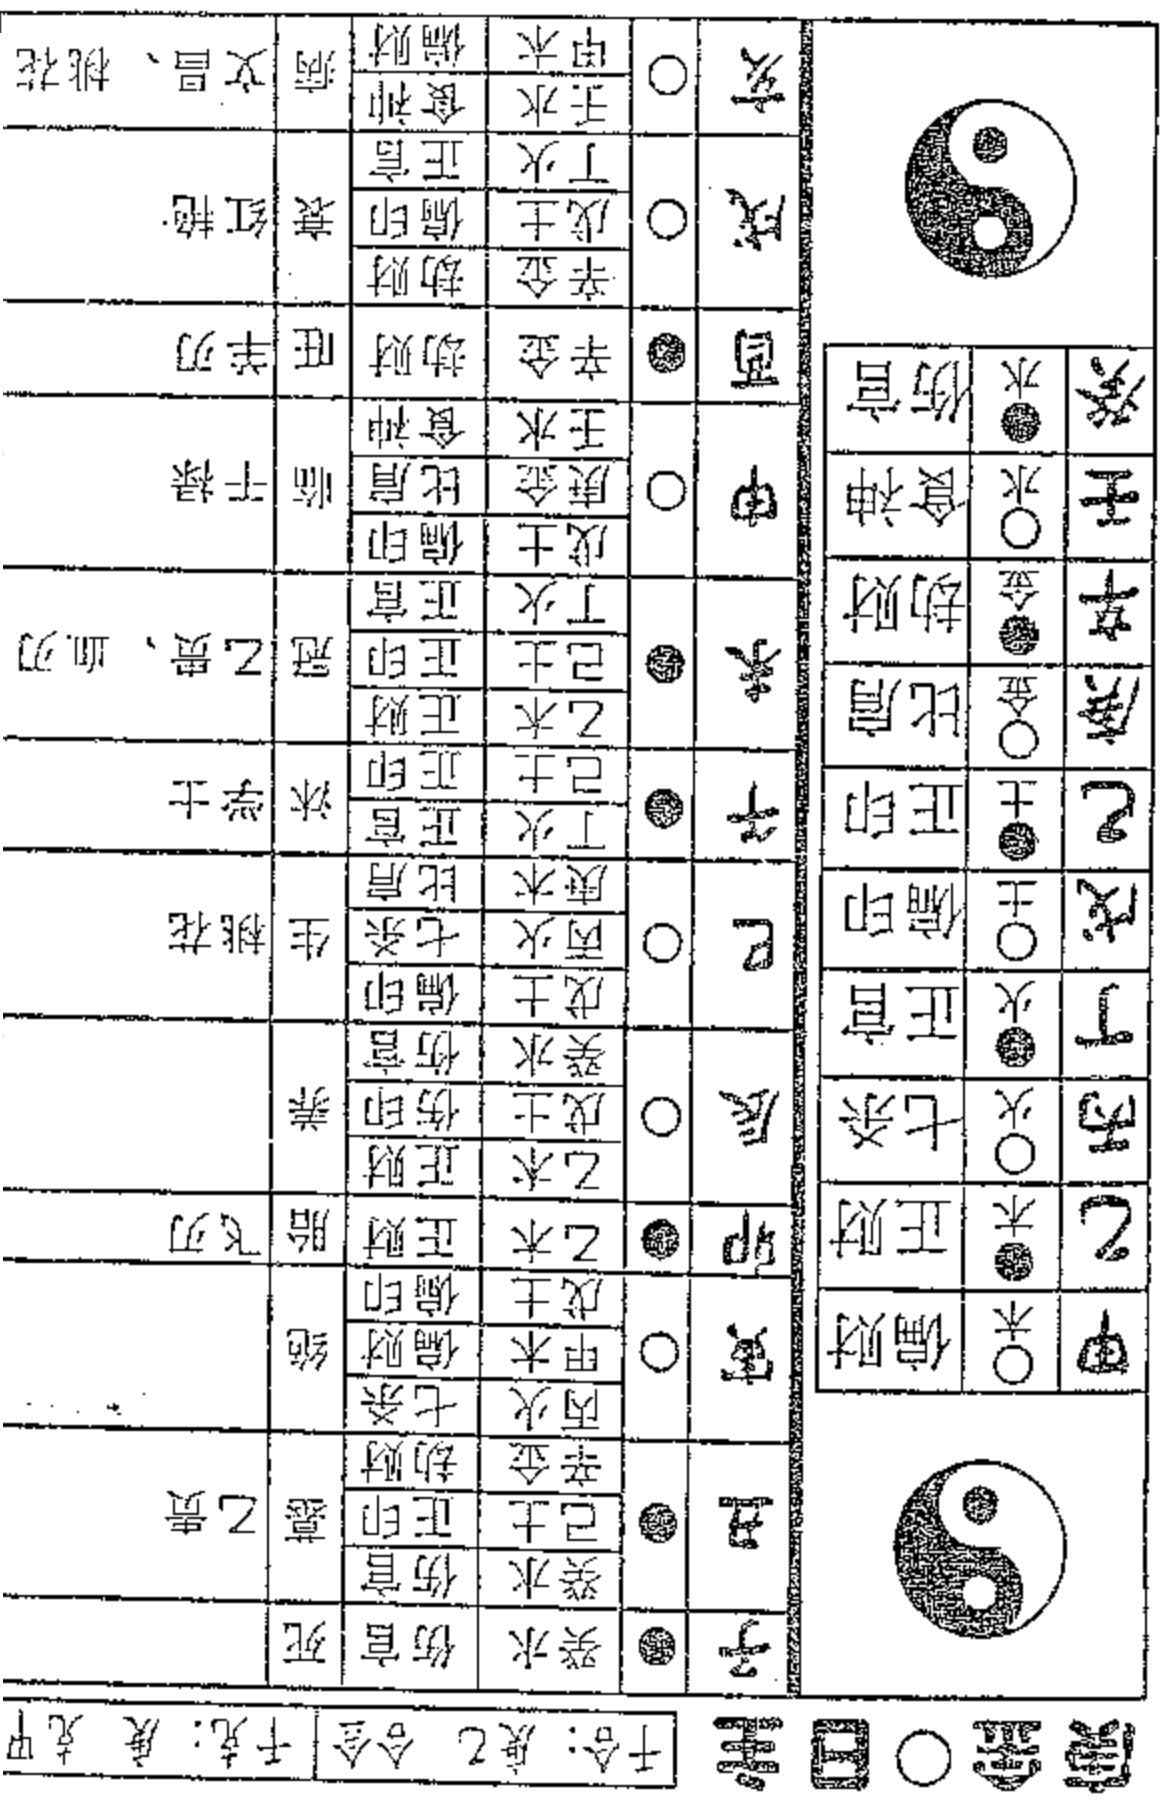 庚金○日主
干合：庚乙合金
干克：庚克甲
甲 ○木 偏财
乙 ●木 正财
丙 ○火 七杀
丁 ●火 正官
戊 ○土 偏印
己 ●土 正印
庚 ○金 比肩
辛 ●金 劫财
壬 ○水 食神
癸 ●水 伤官
子 ● 癸水 伤官 死
丑 ● 癸水 伤官 墓 乙贵
己土 正印
辛金 劫财
寅 ○ 丙火 七杀 绝
甲木 偏财
戊土 偏印
卯 ● 乙木 正财 胎 飞刃
辰 ○ 乙木 正财 养
戊土 伤印
癸水 伤官
巳 ○ 戊土 偏印 生 桃花
丙火 七杀
庚木 比肩
午 ● 丁火 正官 沐 学士
己土 正印
未 ● 乙木 正财 冠 乙贵、血刃
己土 正印
丁火 正官
申 ○ 戊土 偏印 临 干禄
庚金 比肩
壬水 食神
酉 ● 辛金 劫财 旺 羊刃
戌 ○ 辛金 劫财 衰 红艳
戊土 偏印
丁火 正官
亥 ○ 壬水 食神 病 文昌、桃花
甲木 偏财